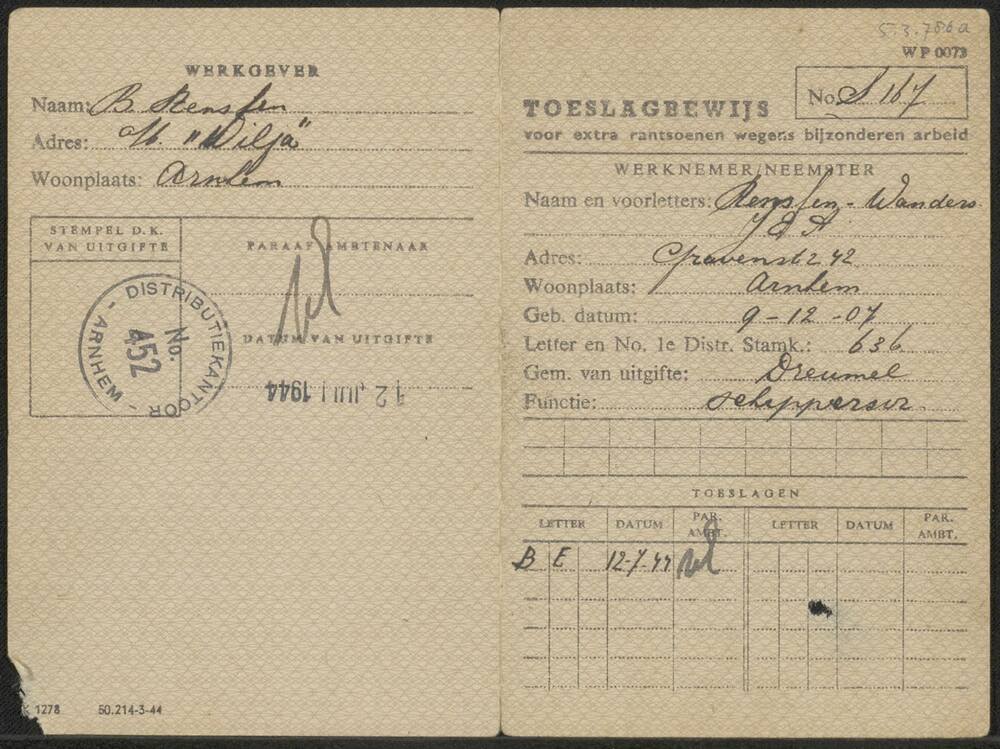 WERKGEVER
Naam: B. Rensen
Adres: a/b. "Wilja"
Woonplaats: Arnhem
STEMPEL D.K.
VAN UITGIFTE
PARAAF AMBTENAAR
DISTRIBUTIEKANTOOR - ARNHEM -
No. 452
DATUM VAN UITGIFTE
12 JULI 1944
K 1278 50.214-3-44
5.3.786a
WP 0073
No. S 167
TOESLAGBEWIJS
voor extra rantsoenen wegens bijzonderen arbeid
WERKNEMER/NEEMSTER
Naam en voorletters: Rensen - Wanders
Adres: Gravenstr 42
Woonplaats: Arnhem
Geb. datum: 9-12-07
Letter en No. 1e Distr. Stamk.: 636
Gem. van uitgifte: Dreumel
Functie: schippersvr.
TOESLAGEN
LETTER DATUM PAR. AMBT. LETTER DATUM PAR. AMBT.
B E 12-7-44